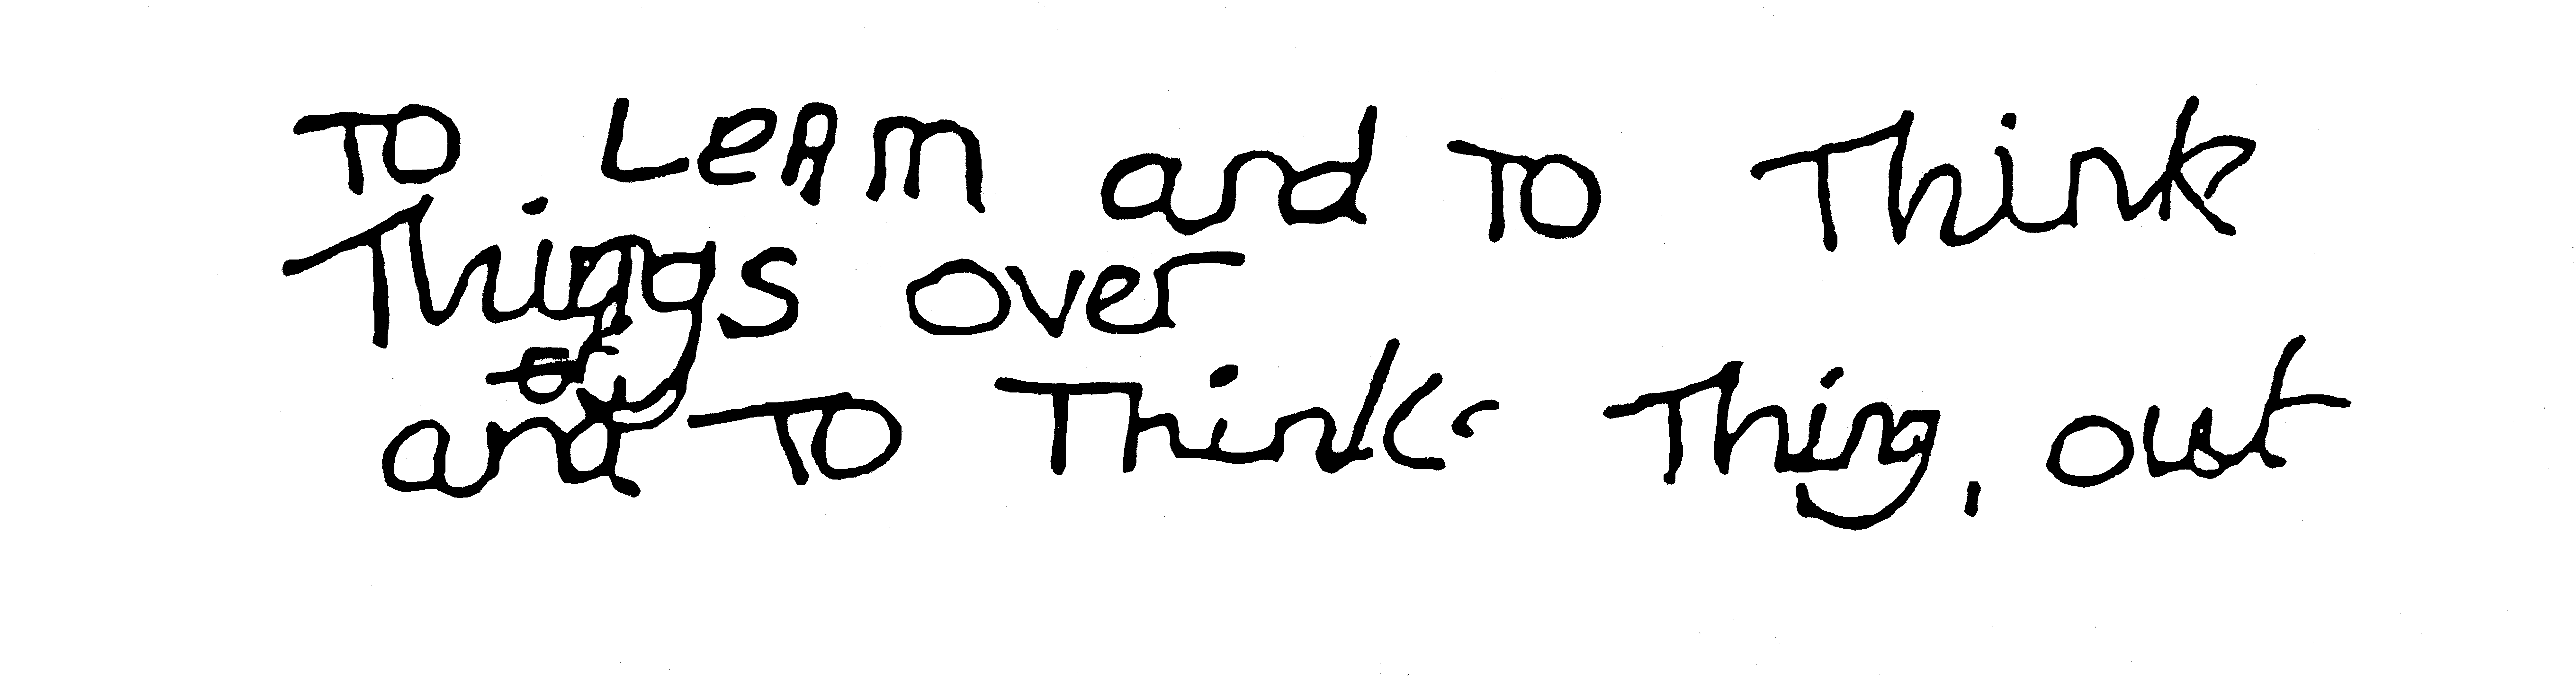 To LeARn and To Think
Things over
and To Think Thing, out